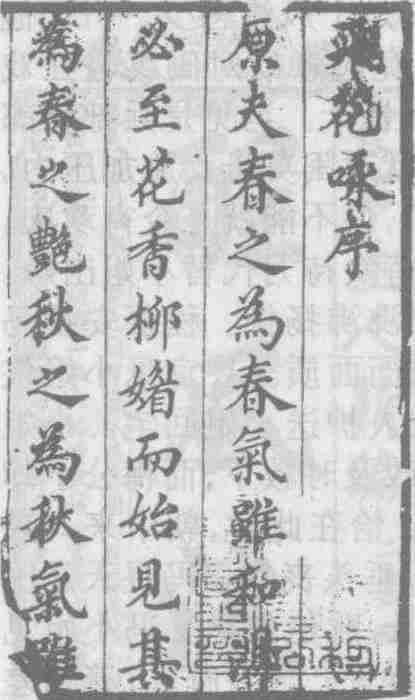 飛花咏序
原夫春之為春氣雖和
必至花香柳媚而始見其
為春之艷秋之為秋氣雖